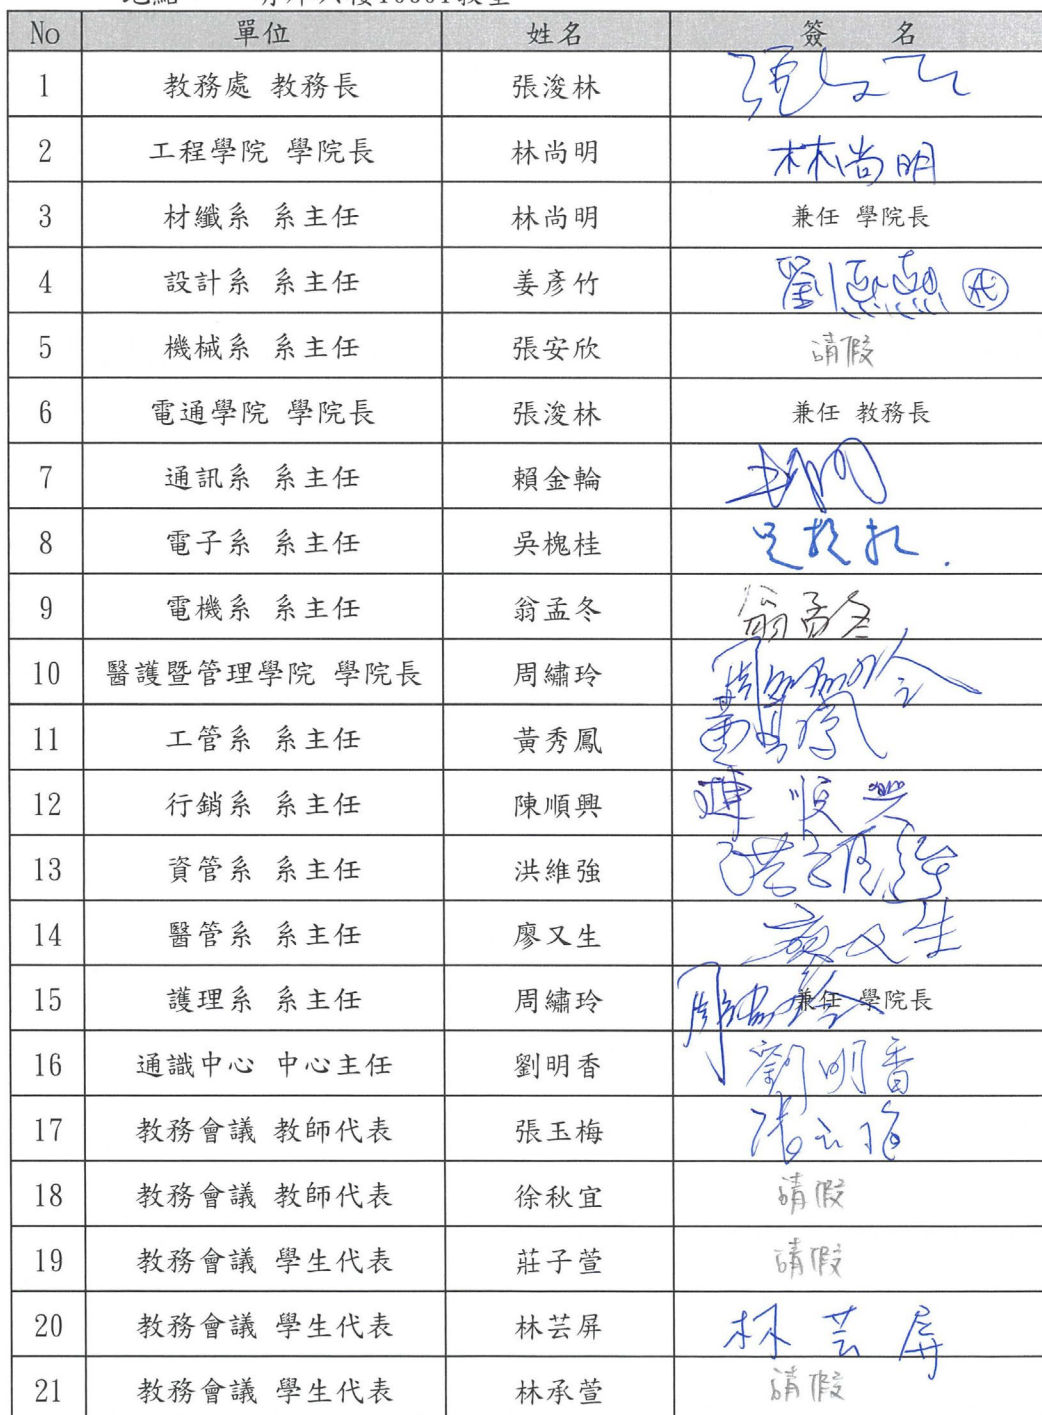 No 單位 姓名 簽 名
1 教務處 教務長 張浚林
2 工程學院 學院長 林尚明 林尚明
3 材纖系 系主任 林尚明 兼任 學院長
4 設計系 系主任 姜彥竹 劉熙熙 代
5 機械系 系主任 張安欣 請假
6 電通學院 學院長 張浚林 兼任 教務長
7 通訊系 系主任 賴金輪
8 電子系 系主任 吳槐桂
9 電機系 系主任 翁孟冬 翁孟冬
10 醫護暨管理學院 學院長 周繡玲 周繡玲
11 工管系 系主任 黃秀鳳 黃秀鳳
12 行銷系 系主任 陳順興 陳順興
13 資管系 系主任 洪維強 洪維強
14 醫管系 系主任 廖又生 廖又生
15 護理系 系主任 周繡玲 周繡玲 兼任 學院長
16 通識中心 中心主任 劉明香 劉明香
17 教務會議 教師代表 張玉梅 張玉梅
18 教務會議 教師代表 徐秋宜 請假
19 教務會議 學生代表 莊子萱 請假
20 教務會議 學生代表 林芸屏 林芸屏
21 教務會議 學生代表 林承萱 請假